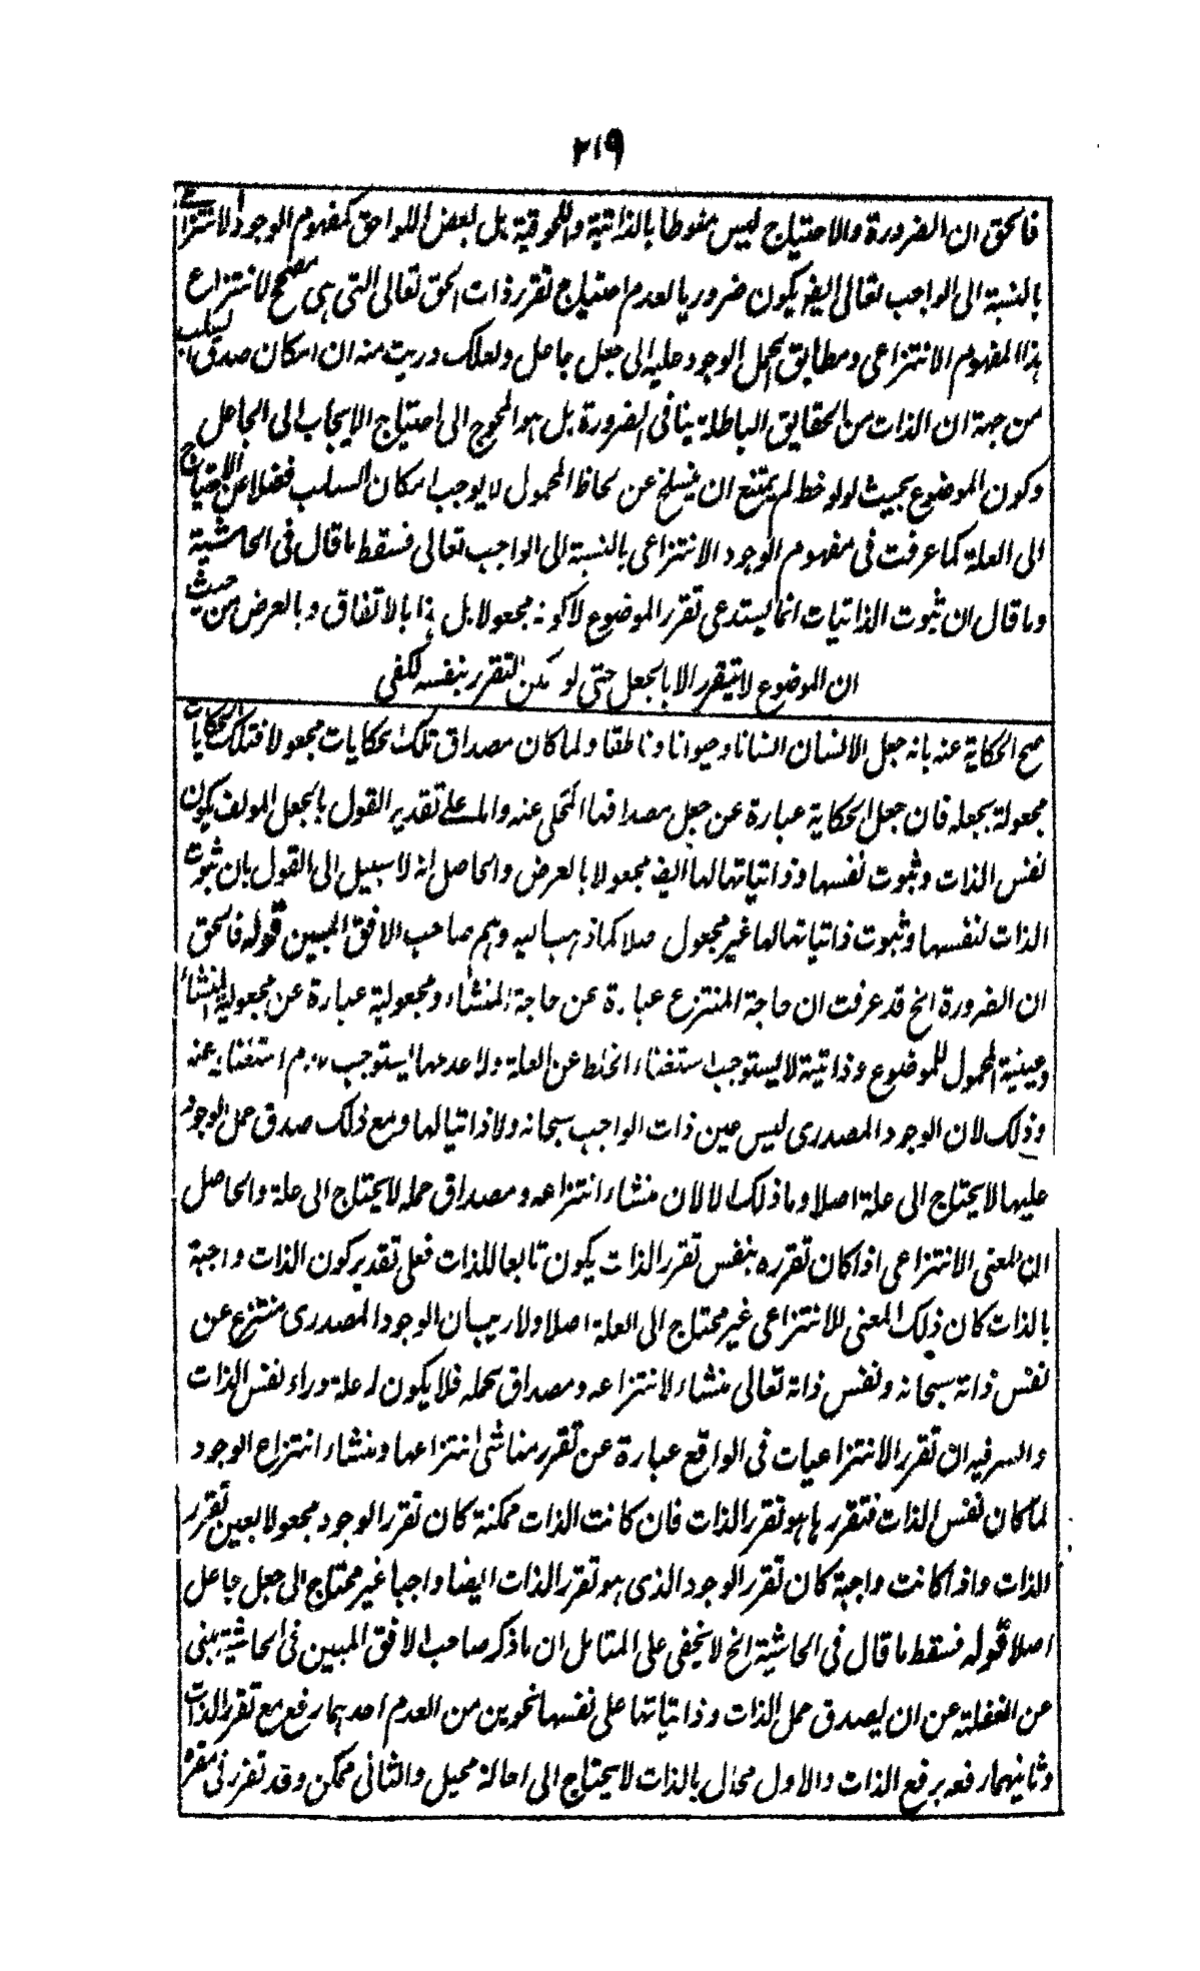 ٢١٩
فالحق ان الضرورة والاحتياج ليس منوطا بالذاتية واللحوقية بل بعض اللواحق كمفهوم الوجود الانتزاعى
بالنسبة الى الواجب تعالى ايضا يكون ضروريا لعدم احتياج تقرر ذات الحق تعالى التى هى مصحح لانتزاع
هذا المفهوم الانتزاعى ومطابق لحمل الوجود عليه الى جعل جاعل ولعلك دريت منه ان امكان صدق السلب
من جهة ان الذات من الحقايق الباطلة ينافى الضرورة بل هو المحوج الى احتياج الايجاب الى الجاعل
وكون الموضوع بحيث لو لوحظ لم يمتنع ان ينسلخ عن لحاظ المحمول لا يوجب امكان السلب فضلا عن الاحتياج
الى العلة كما عرفت فى مفهوم الوجود الانتزاعى بالنسبة الى الواجب تعالى فسقط ما قال فى الحاشية
وما قال ان ثبوت الذاتيات انما يستدعى تقرر الموضوع لا كونه مجعولا بل هذا بالاتفاق وبالعرض من حيث
ان الموضوع لا يتقرر الا بالجعل حتى لو امكن التقرر بنفسه لكفى
صح الحكاية عنه بانه جعل الانسان انسانا وحيوانا وناطقا ولما كان مصداق تلك الحكايات مجعولا فتلك الحكايات
مجعولة بجعله فان جعل الحكاية عبارة عن جعل مصداقها المحكى عنه واما على تقدير القول بالجعل المولف يكون
نفس الذات وثبوت نفسها وذاتياتها لها ايضا مجعولا بالعرض والحاصل انه لا سبيل الى القول بان ثبوت
الذات لنفسها وثبوت ذاتياتها لها غير مجعول اصلا كما ذهب اليه وهم صاحب الافق المبين قوله فالحق
ان الضرورة الخ قد عرفت ان حاجة المنتزع عبارة عن حاجة المنشاء ومجعولية عبارة عن مجعولية المنشاء
وعينية المحمول للموضوع وذاتية لا يستوجب استغناء الخلط عن العلة ولا عدمها يستوجب عدم استغناءه عنه
وذلك لان الوجود المصدرى ليس عين ذات الواجب سبحانه ولا ذاتيا لها ومع ذلك صدق حمل الوجود
عليها لا يحتاج الى علة اصلا وما ذلك الا لان منشاء انتزاعه ومصداق حمله لا يحتاج الى علة والحاصل
ان المعنى الانتزاعى اذا كان تقرره بنفس تقرر الذات يكون تابعا للذات فعلى تقدير كون الذات واجبة
بالذات كان ذلك المعنى الانتزاعى غير محتاج الى العلة اصلا ولا ريب ان الوجود المصدرى منتزع عن
نفس ذاته سبحانه ونفس ذاته تعالى منشاء لانتزاعه ومصداق لحمله فلا يكون له علة وراء نفس الذات
والسر فيه ان تقرر الانتزاعيات فى الواقع عبارة عن تقرر مناشى انتزاعها ومنشاء انتزاع الوجود
لما كان نفس الذات فتقررها هو تقرر الذات فان كانت الذات ممكنة كان تقرر الوجود مجعولا بعين تقرر
الذات واذا كانت واجبة كان تقرر الوجود الذى هو تقرر الذات ايضا واجبا غير محتاج الى جعل جاعل
اصلا قوله فسقط ما قال فى الحاشية الخ لا يخفى على المتامل ان ما ذكر صاحب الافق المبين فى الحاشية مبنى
عن الغفلة عن ان لصدق حمل الذات وذاتياتها على نفسها نحوين من العدم احدهما رفع مع تقرر الذات
وثانيهما رفعه برفع الذات والاول محال بالذات لا يحتاج الى احالة محيل والثانى ممكن وقد تقرر فى مقره